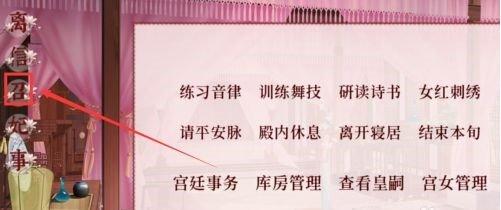 离
信
召
元
事
练习音律 训练舞技 研读诗书 女红刺绣
请平安脉 殿内休息 离开寝居 结束本旬
宫廷事务 库房管理 查看皇嗣 宫女管理